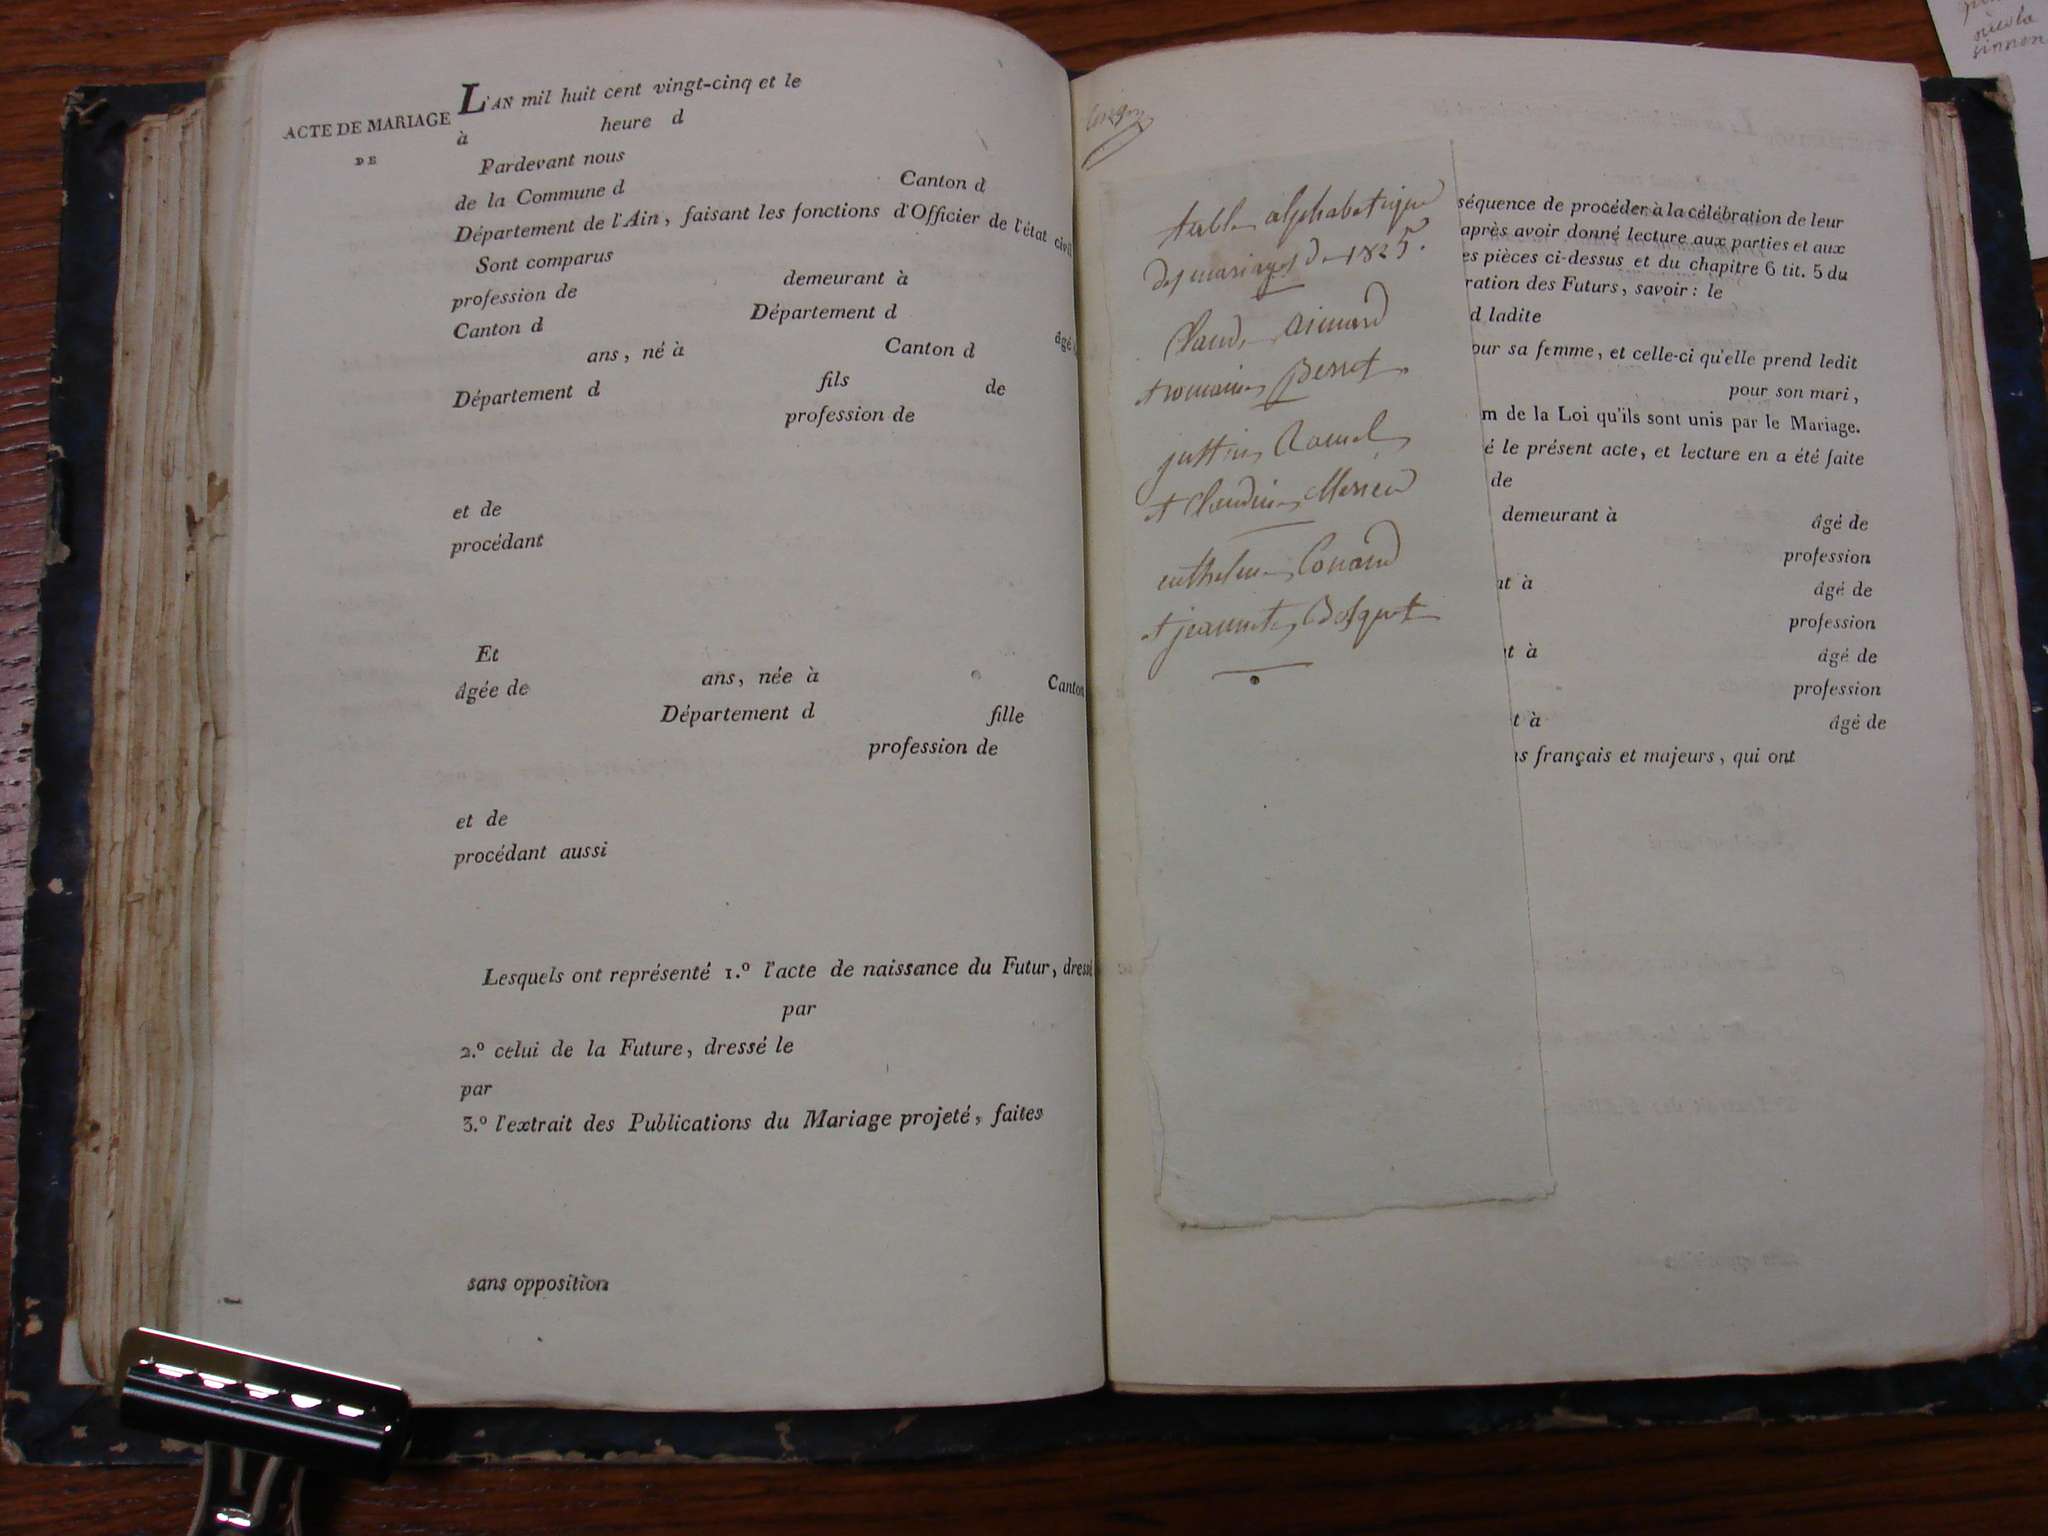 ACTE DE MARIAGE
DE
L'AN mil huit cent vingt-cinq et le
à heure d
Pardevant nous
de la Commune d Canton d
Département de l'Ain, faisant les fonctions d'Officier de l'état civil
Sont comparus
profession de demeurant à
Canton d Département d âgé
ans, né à Canton d
Département d fils de
profession de
et de
procédant
Et
âgée de ans, née à Canton
Département d fille
profession de
et de
procédant aussi
Lesquels ont représenté 1.º l'acte de naissance du Futur, dressé
par
2.º celui de la Future, dressé le
par
3.º l'extrait des Publications du Mariage projeté, faites
sans opposition
table alphabetique
des mariages de 1825.
Claude aimard
et romaine Perret
justin
et Claudine
anthelme Conand
et jeannette Bosquet
séquence de procéder à la célébration de leur
après avoir donné lecture aux parties et aux
es pièces ci-dessus et du chapitre 6 tit. 5 du
ration des Futurs, savoir: le
d ladite
our sa femme, et celle-ci qu'elle prend ledit
pour son mari,
m de la Loi qu'ils sont unis par le Mariage.
é le présent acte, et lecture en a été faite
de
demeurant à âgé de
profession
nt à âgé de
profession
nt à âgé de
profession
t à âgé de
ns français et majeurs, qui ont
nicola